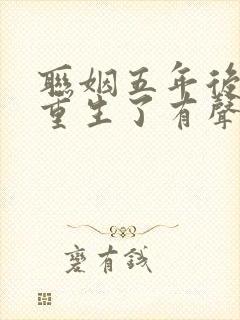 聯姻五年後
重生了有聲
麼有錢